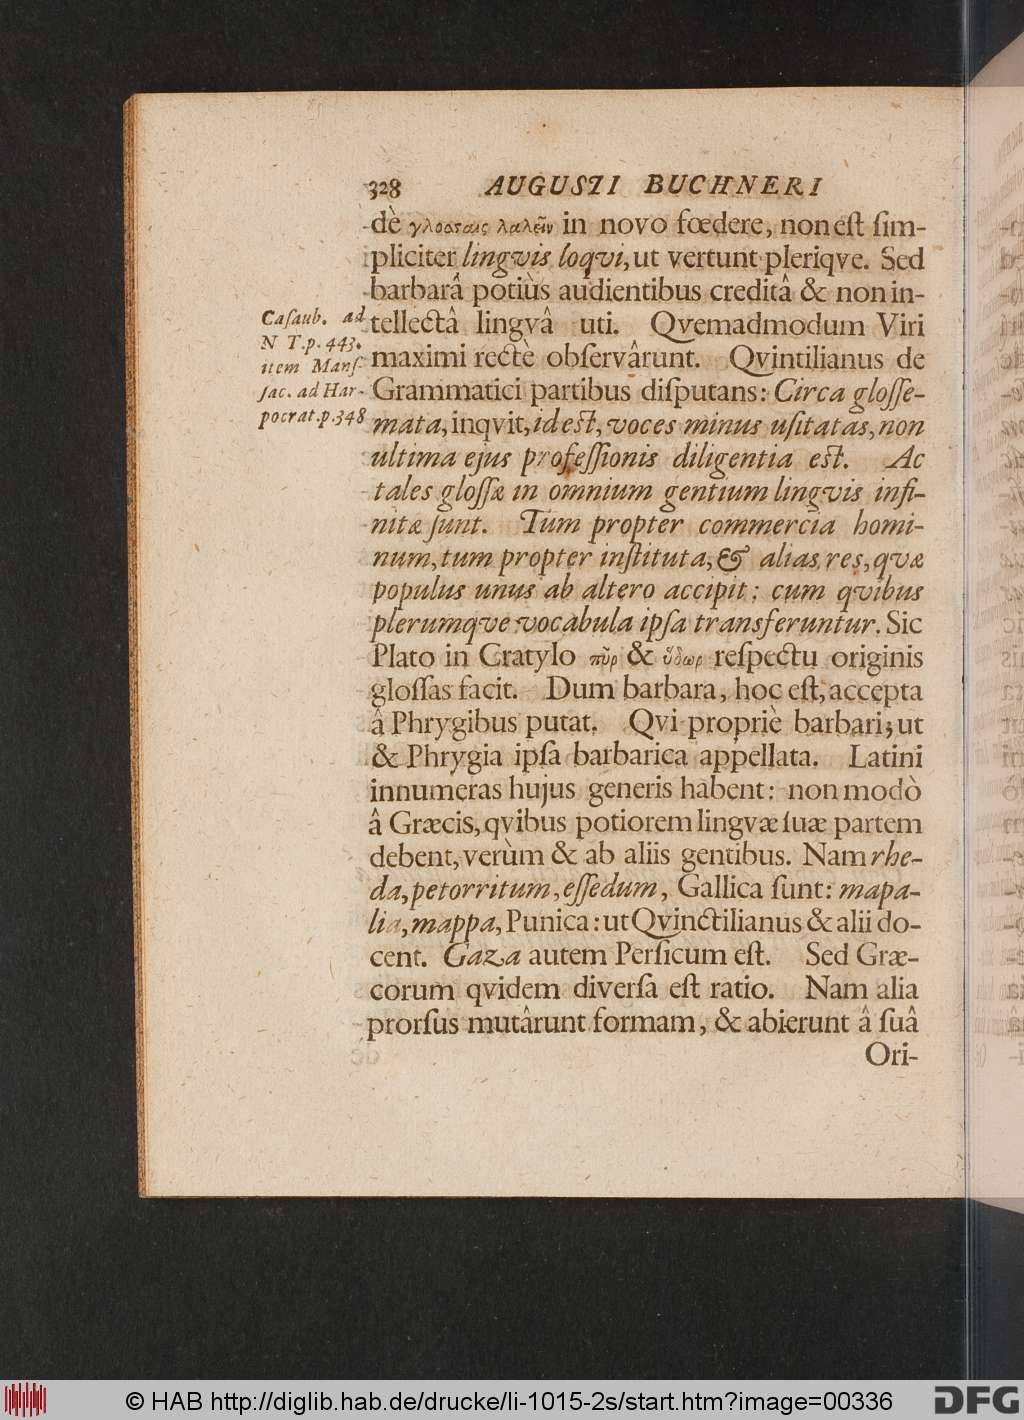 328 AUGUSTI BUCHNERI
dè γλοσσαις λαλεῖν in novo fœdere, non eſt ſim-
pliciter lingvis loqvi, ut vertunt pleriqve. Sed
barbarâ potiùs audientibus creditâ & non in-
tellectâ lingvâ uti. Qvemadmodum Viri
maximi rectè obſervârunt. Qvintilianus de
Grammatici partibus diſputans: Circa gloſſe-
mata, inqvit, id est, voces minus uſitatas, non
ultima ejus profeſſionis diligentia est. Ac
tales gloſſæ in omnium gentium lingvis infi-
nitæ ſunt. Tum propter commercia homi-
num, tum propter inſtituta, & alias res, qvæ
populus unus ab altero accipit: cum qvibus
plerumqve vocabula ipſa transferuntur. Sic
Plato in Cratylo πῦρ & ὕδωρ reſpectu originis
gloſſas facit. Dum barbara, hoc eſt, accepta
â Phrygibus putat. Qvi propriè barbari; ut
& Phrygia ipſa barbarica appellata. Latini
innumeras hujus generis habent: non modò
â Græcis, qvibus potiorem lingvæ ſuæ partem
debent, verùm & ab aliis gentibus. Nam rhe-
da, petorritum, eſſedum, Gallica ſunt: mapa-
lia, mappa, Punica: ut Qvinctilianus & alii do-
cent. Gaza autem Perſicum eſt. Sed Græ-
corum qvidem diverſa eſt ratio. Nam alia
prorſus mutârunt formam, & abierunt â ſuâ
Ori-
Caſaub. ad
N T. p. 443.
item Manſ-
ſac. ad Har-
pocrat. p. 348
© HAB http://diglib.hab.de/drucke/li-1015-2s/start.htm?image=00336
DFG